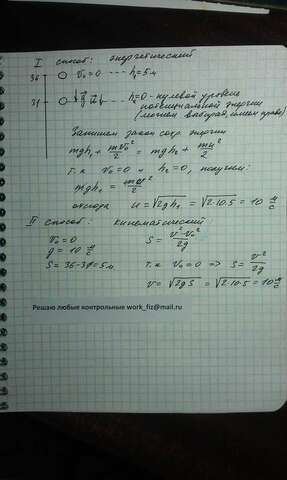 I способ: энергетический
36 v₀=0 --- h₁=5м
31 g u h₂=0 - нулевой уровень
потенциальной энергии
(можем выбирать, имеем право)
Запишем закон сохр. энергии
mgh₁ + mv₀²/2 = mgh₂ + mu²/2
т.к v₀=0 и h₂=0, получим:
mgh₁ = mu²/2
откуда u = √2gh₁ = √2·10·5 = 10 м/с
II способ: кинематический
v₀=0 S = v²-v₀²/2g
g=10 м/с²
S=36-31=5м т.к v₀=0 => S = v²/2g
v = √2gS = √2·10·5 = 10 м/с
Решаю любые контрольные work_fiz@mail.ru